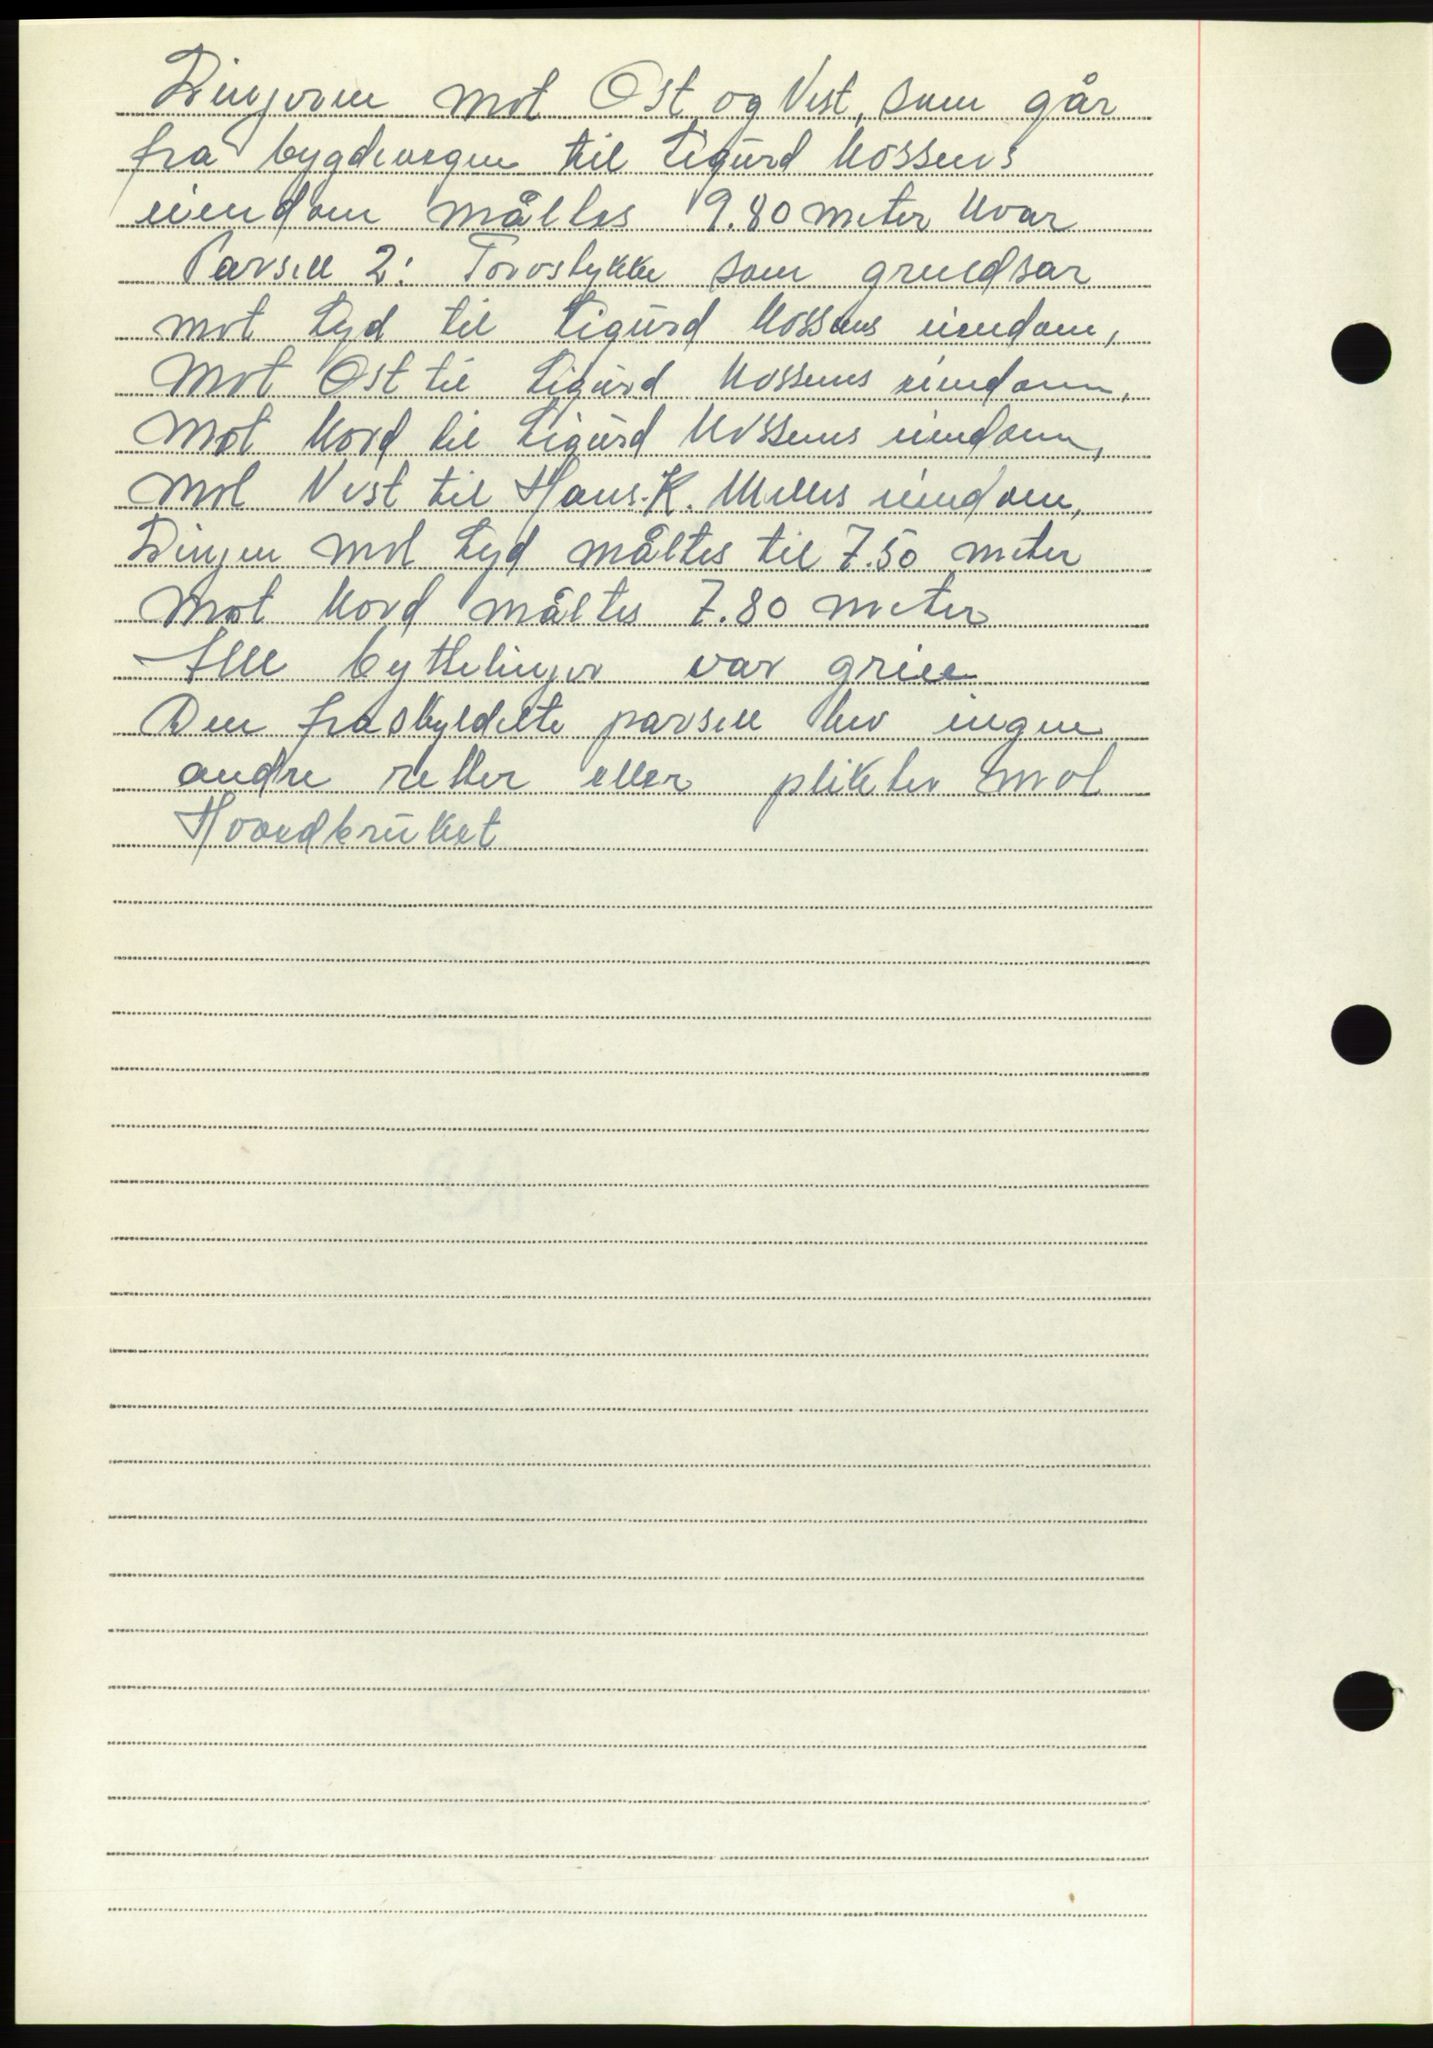 Linjerne mot Øst og Vest, som går
fra bygdevegen til Sigurd Mossens
eiendom måltes 9.80 meter kvar
Parsell 2: Torvstykke som grendsar
mot Syd til Sigurd Mossens eiendom,
mot Øst til Sigurd Mossens eiendom,
mot Nord til Sigurd Mossens eiendom,
mot Vest til Hans K. eiendom,
Linjen mot Syd måltes til 7.50 meter
mot Nord måltes 7.80 meter
Alle byttelinjer var greie
Den fraskyldelte parsell hev ingen
andre retter eller plikter mot
Hovedbruket